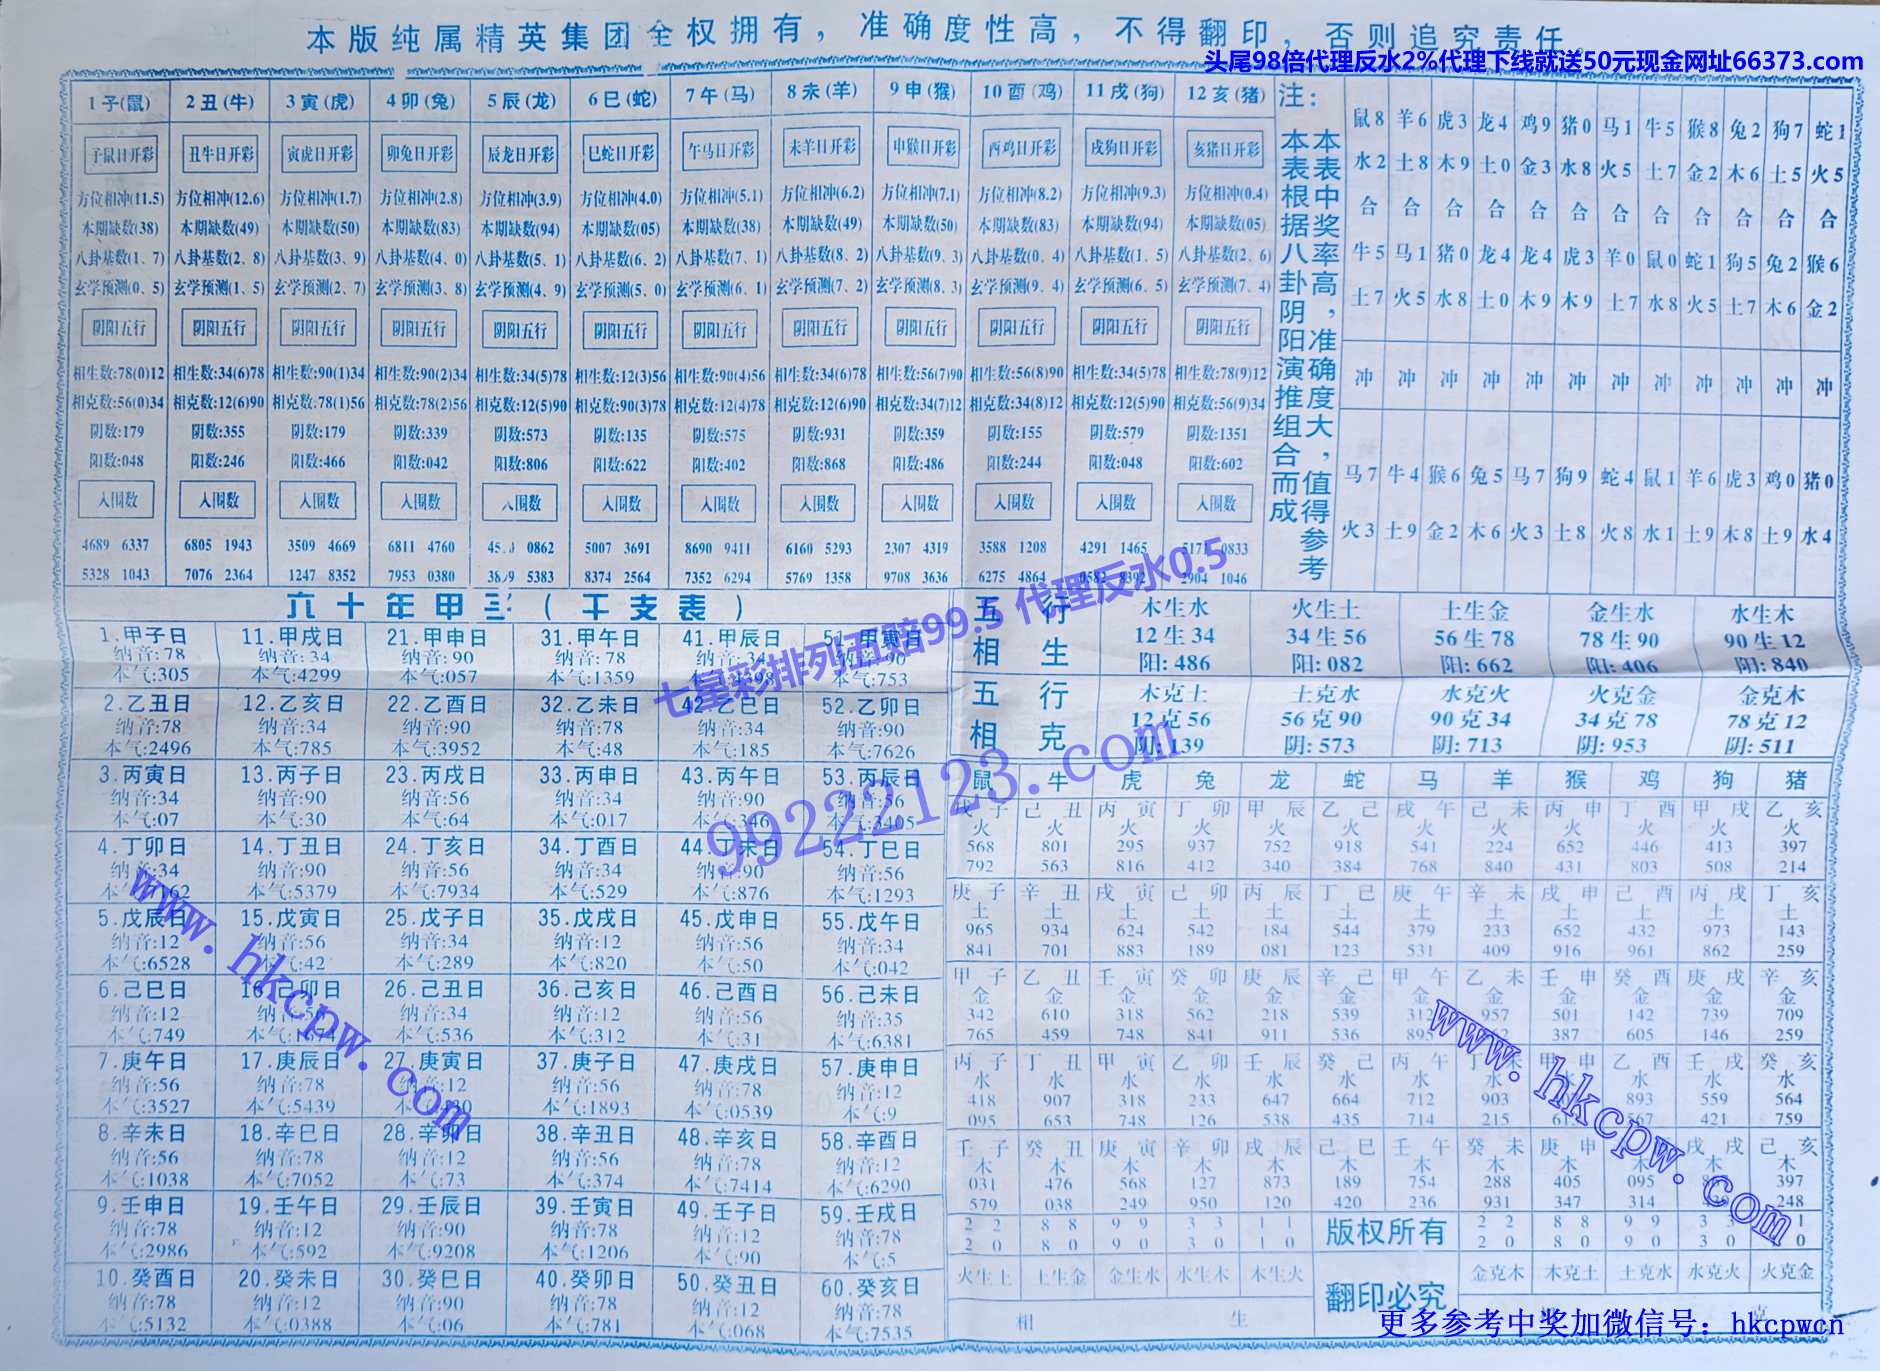 本版纯属精英集团全权拥有，准确度性高，不得翻印，否则追究责任。
头尾98倍代理反水2%代理下线就送50元现金网址66373.com
1子(鼠) 2丑(牛) 3寅(虎) 4卯(兔) 5辰(龙) 6巳(蛇) 7午(马) 8未(羊) 9申(猴) 10酉(鸡) 11戌(狗) 12亥(猪)
子鼠日开彩 丑牛日开彩 寅虎日开彩 卯兔日开彩 辰龙日开彩 巳蛇日开彩 午马日开彩 未羊日开彩 申猴日开彩 酉鸡日开彩 戌狗日开彩 亥猪日开彩
方位相冲(11.5) 方位相冲(12.6) 方位相冲(1.7) 方位相冲(2.8) 方位相冲(3.9) 方位相冲(4.0) 方位相冲(5.1) 方位相冲(6.2) 方位相冲(7.1) 方位相冲(8.2) 方位相冲(9.3) 方位相冲(0.4)
本期缺数(38) 本期缺数(49) 本期缺数(50) 本期缺数(83) 本期缺数(94) 本期缺数(05) 本期缺数(38) 本期缺数(49) 本期缺数(50) 本期缺数(83) 本期缺数(94) 本期缺数(05)
八卦基数(1、7) 八卦基数(2、8) 八卦基数(3、9) 八卦基数(4、0) 八卦基数(5、1) 八卦基数(6、2) 八卦基数(7、1) 八卦基数(8、2) 八卦基数(9、3) 八卦基数(0、4) 八卦基数(1、5) 八卦基数(2、6)
玄学预测(0、5) 玄学预测(1、5) 玄学预测(2、7) 玄学预测(3、8) 玄学预测(4、9) 玄学预测(5、0) 玄学预测(6、1) 玄学预测(7、2) 玄学预测(8、3) 玄学预测(9、4) 玄学预测(6、5) 玄学预测(7、4)
阴阳五行 阴阳五行 阴阳五行 阴阳五行 阴阳五行 阴阳五行 阴阳五行 阴阳五行 阴阳五行 阴阳五行 阴阳五行 阴阳五行
相生数:78(0)12 相生数:34(6)78 相生数:90(1)34 相生数:90(2)34 相生数:34(5)78 相生数:12(3)56 相生数:90(4)56 相生数:34(6)78 相生数:56(7)90 相生数:56(8)90 相生数:34(5)78 相生数:78(9)12
相克数:56(0)34 相克数:12(6)90 相克数:78(1)56 相克数:78(2)56 相克数:12(5)90 相克数:90(3)78 相克数:12(4)78 相克数:12(6)90 相克数:34(7)12 相克数:34(8)12 相克数:12(5)90 相克数:56(9)34
阴数:179 阴数:355 阴数:179 阴数:339 阴数:573 阴数:135 阴数:575 阴数:931 阴数:359 阴数:155 阴数:579 阴数:1351
阳数:048 阳数:246 阳数:466 阳数:042 阳数:806 阳数:622 阳数:402 阳数:868 阳数:486 阳数:244 阳数:048 阳数:602
入围数 入围数 入围数 入围数 入围数 入围数 入围数 入围数 入围数 入围数 入围数 入围数
4689 6337 6805 1943 3509 4669 6811 4760 0862 5007 3691 8690 9411 6160 5293 2307 4319 3588 1208 4291 1465 0833
5328 1043 7076 2364 1247 8352 7953 0380 5383 8374 2564 7352 6294 5769 1358 9708 3636 6275 4864 0582 8392 2904 1046
注：
本表中奖率高，准确度大，值得参考
本表根据八卦阴阳演推组合而成
鼠8 羊6 虎3 龙4 鸡9 猪0 马1 牛5 猴8 兔2 狗7 蛇1
水2 土8 木9 土0 金3 水8 火5 土7 金2 木6 土5 火5
合 合 合 合 合 合 合 合 合 合 合 合
牛5 马1 猪0 龙4 龙4 虎3 羊0 鼠0 蛇1 狗5 兔2 猴6
土7 火5 水8 土0 木9 木9 土7 水8 火5 土7 木6 金2
冲 冲 冲 冲 冲 冲 冲 冲 冲 冲 冲 冲
马7 牛4 猴6 兔5 马7 狗9 蛇4 鼠1 羊6 虎3 鸡0 猪0
火3 土9 金2 木6 火3 土8 火8 水1 土9 木8 土9 水4
六十年甲子(干支表)
1.甲子日 11.甲戌日 21.甲申日 31.甲午日 41.甲辰日 51.甲寅日
纳音:78 纳音:34 纳音:90 纳音:78 纳音: 纳音:90
本气:305 本气:4299 本气:057 本气:1359 本气: 本气:753
2.乙丑日 12.乙亥日 22.乙酉日 32.乙未日 42.乙巳日 52.乙卯日
纳音:78 纳音:34 纳音:90 纳音:78 纳音:34 纳音:90
本气:2496 本气:785 本气:3952 本气:48 本气:185 本气:7626
3.丙寅日 13.丙子日 23.丙戌日 33.丙申日 43.丙午日 53.丙辰日
纳音:34 纳音:90 纳音:56 纳音:34 纳音:90 纳音:56
本气:07 本气:30 本气:64 本气:017 本气:346 本气:3405
4.丁卯日 14.丁丑日 24.丁亥日 34.丁酉日 44.丁未日 54.丁巳日
纳音:34 纳音:90 纳音:56 纳音:34 纳音:90 纳音:56
本气: 本气:5379 本气:7934 本气:529 本气:876 本气:1293
5.戊辰日 15.戊寅日 25.戊子日 35.戊戌日 45.戊申日 55.戊午日
纳音:12 纳音:56 纳音:34 纳音:12 纳音:56 纳音:34
本气:6528 本气:42 本气:289 本气:820 本气:50 本气:042
6.己巳日 16.己卯日 26.己丑日 36.己亥日 46.己酉日 56.己未日
纳音:12 纳音: 纳音:34 纳音:12 纳音:56 纳音:35
本气:749 本气: 本气:536 本气:312 本气:31 本气:6381
7.庚午日 17.庚辰日 27.庚寅日 37.庚子日 47.庚戌日 57.庚申日
纳音:56 纳音:78 纳音:12 纳音:56 纳音:78 纳音:12
本气:3527 本气:5439 本气: 本气:1893 本气:0539 本气:9
8.辛未日 18.辛巳日 28.辛卯日 38.辛丑日 48.辛亥日 58.辛酉日
纳音:56 纳音:78 纳音:12 纳音:56 纳音:78 纳音:12
本气:1038 本气:7052 本气:73 本气:374 本气:7414 本气:6290
9.壬申日 19.壬午日 29.壬辰日 39.壬寅日 49.壬子日 59.壬戌日
纳音:78 纳音:12 纳音:90 纳音:78 纳音:12 纳音:78
本气:2986 本气:592 本气:9208 本气:1206 本气:90 本气:5
10.癸酉日 20.癸未日 30.癸巳日 40.癸卯日 50.癸丑日 60.癸亥日
纳音:78 纳音:12 纳音:90 纳音:78 纳音:12 纳音:78
本气:5132 本气:0388 本气:06 本气:781 本气:068 本气:7535
五行相生
木生水 火生土 土生金 金生水 水生木
12生34 34生56 56生78 78生90 90生12
阳:486 阳:082 阳:662 阳:406 阳:840
五行相克
木克土 土克水 水克火 火克金 金克木
12克56 56克90 90克34 34克78 78克12
阴:139 阴:573 阴:713 阴:953 阴:511
鼠 牛 虎 兔 龙 蛇 马 羊 猴 鸡 狗 猪
戊子 己丑 丙寅 丁卯 甲辰 乙己 戌午 己未 丙申 丁酉 甲戌 乙亥
火 火 火 火 火 火 火 火 火 火 火 火
568 801 295 937 752 918 541 224 652 446 413 397
792 563 816 412 340 384 768 840 431 803 508 214
庚子 辛丑 戌寅 己卯 丙辰 丁巳 庚午 辛未 戌申 己酉 丙戌 丁亥
土 土 土 土 土 土 土 土 土 土 土 土
965 934 624 542 184 544 379 233 652 432 973 143
841 701 883 189 081 123 531 409 916 961 862 259
甲子 乙丑 壬寅 癸卯 庚辰 辛己 甲午 乙未 壬申 癸酉 庚戌 辛亥
金 金 金 金 金 金 金 金 金 金 金 金
342 610 318 562 218 539 312 957 501 142 739 709
765 459 748 841 911 536 895 387 605 146 259
丙子 丁丑 甲寅 乙卯 壬辰 癸己 丙午 丁未 甲申 乙酉 壬戌 癸亥
水 水 水 水 水 水 水 水 水 水 水
418 907 318 233 647 664 712 903 893 559 564
095 653 748 126 538 435 714 215 567 421 759
壬子 癸丑 庚寅 辛卯 戌辰 己巳 壬午 癸未 庚申 戌戌 己亥
木 木 木 木 木 木 木 木 木 木 木
031 476 568 127 873 189 754 288 405 095 397
579 038 249 950 120 420 236 931 347 314 248
22 88 99 33 11 版权所有 22 88 99
20 80 90 30 10 20 80 90 30
火生土 土生金 金生水 水生木 木生火 翻印必究 金克木 木克土 土克水 水克火 火克金
相 生 克
七星彩排列五赔99.5 代理反水0.5
99222123.com
www.hkcpw.com
www.hkcpw.com
更多参考中奖加微信号：hkcpwcn